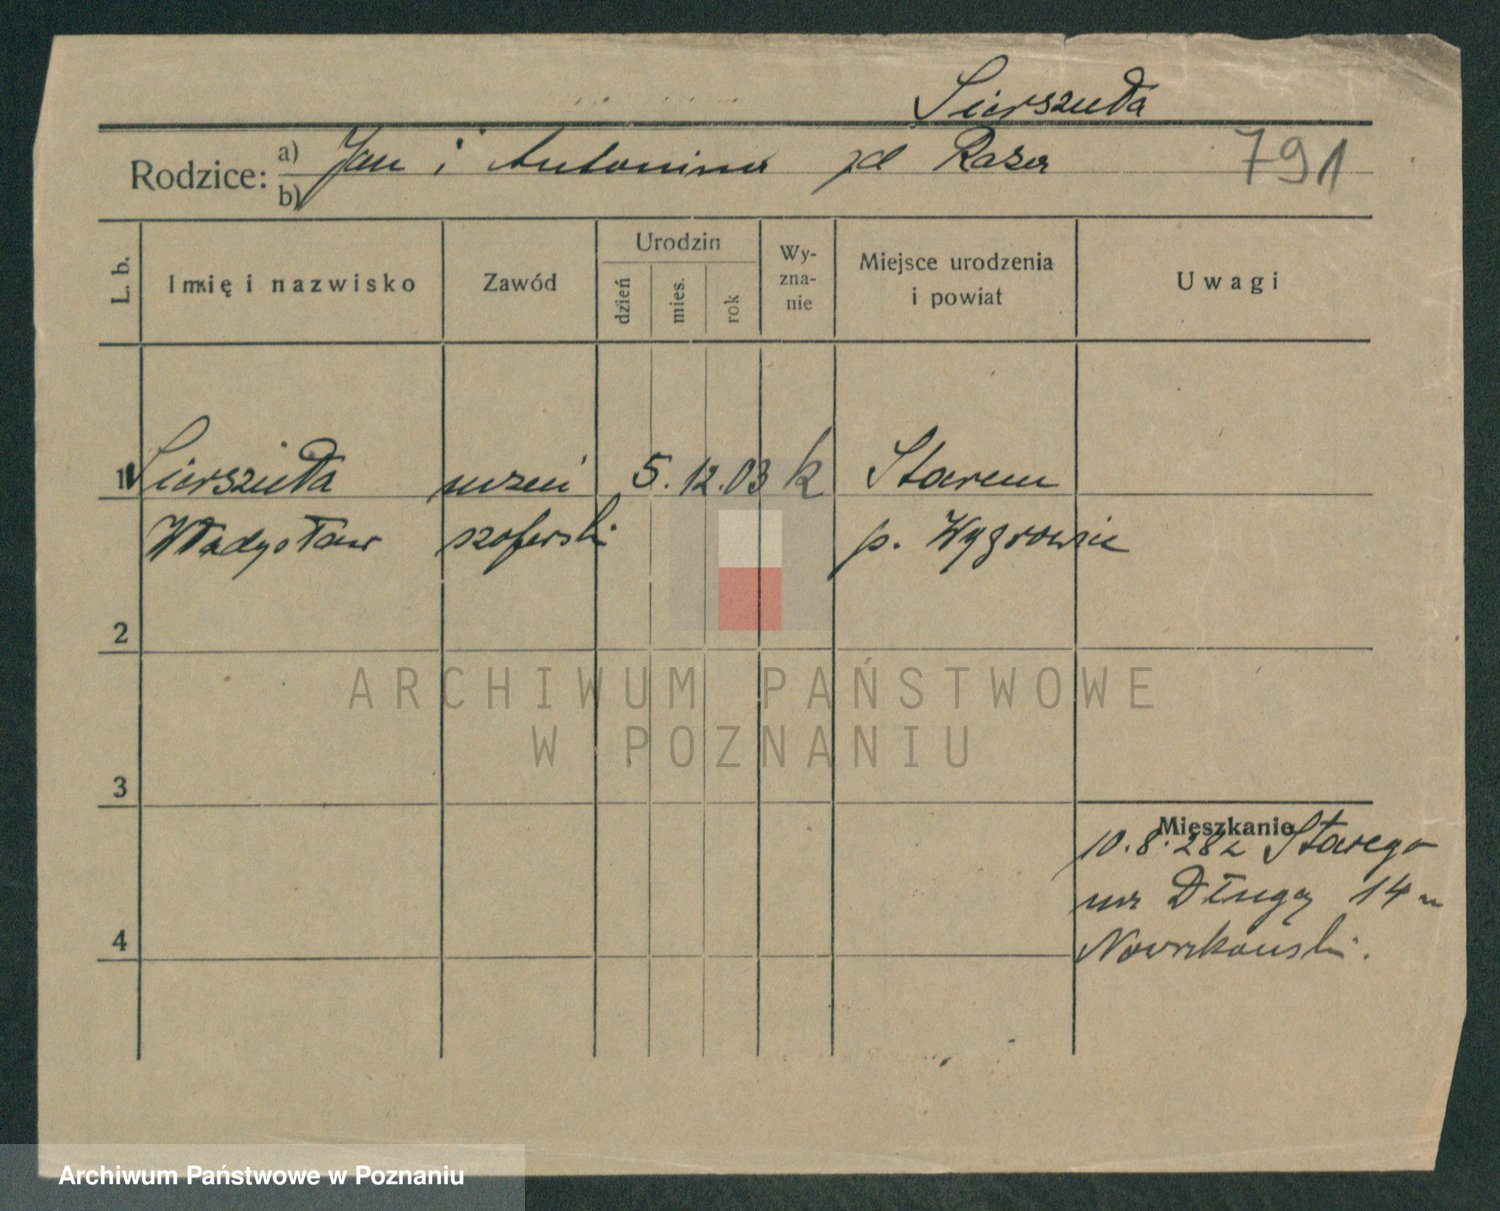 Sierszuła
Rodzice: a) Jan i Antonina zd Raser 791
b)
L. b. Imię i nazwisko Zawód Urodzin dzień mies. rok Wy-zna-nie Miejsce urodzenia i powiat Uwagi
1 Sierszuła uczeń 5. 12. 03 k Starem
Władysław szoferski p. Wągrowiec
2
ARCHIWUM PAŃSTWOWE
W POZNANIU
3
Mieszkanie
10.8.28 z Starego
na Długą 14
4
Archiwum Państwowe w Poznaniu